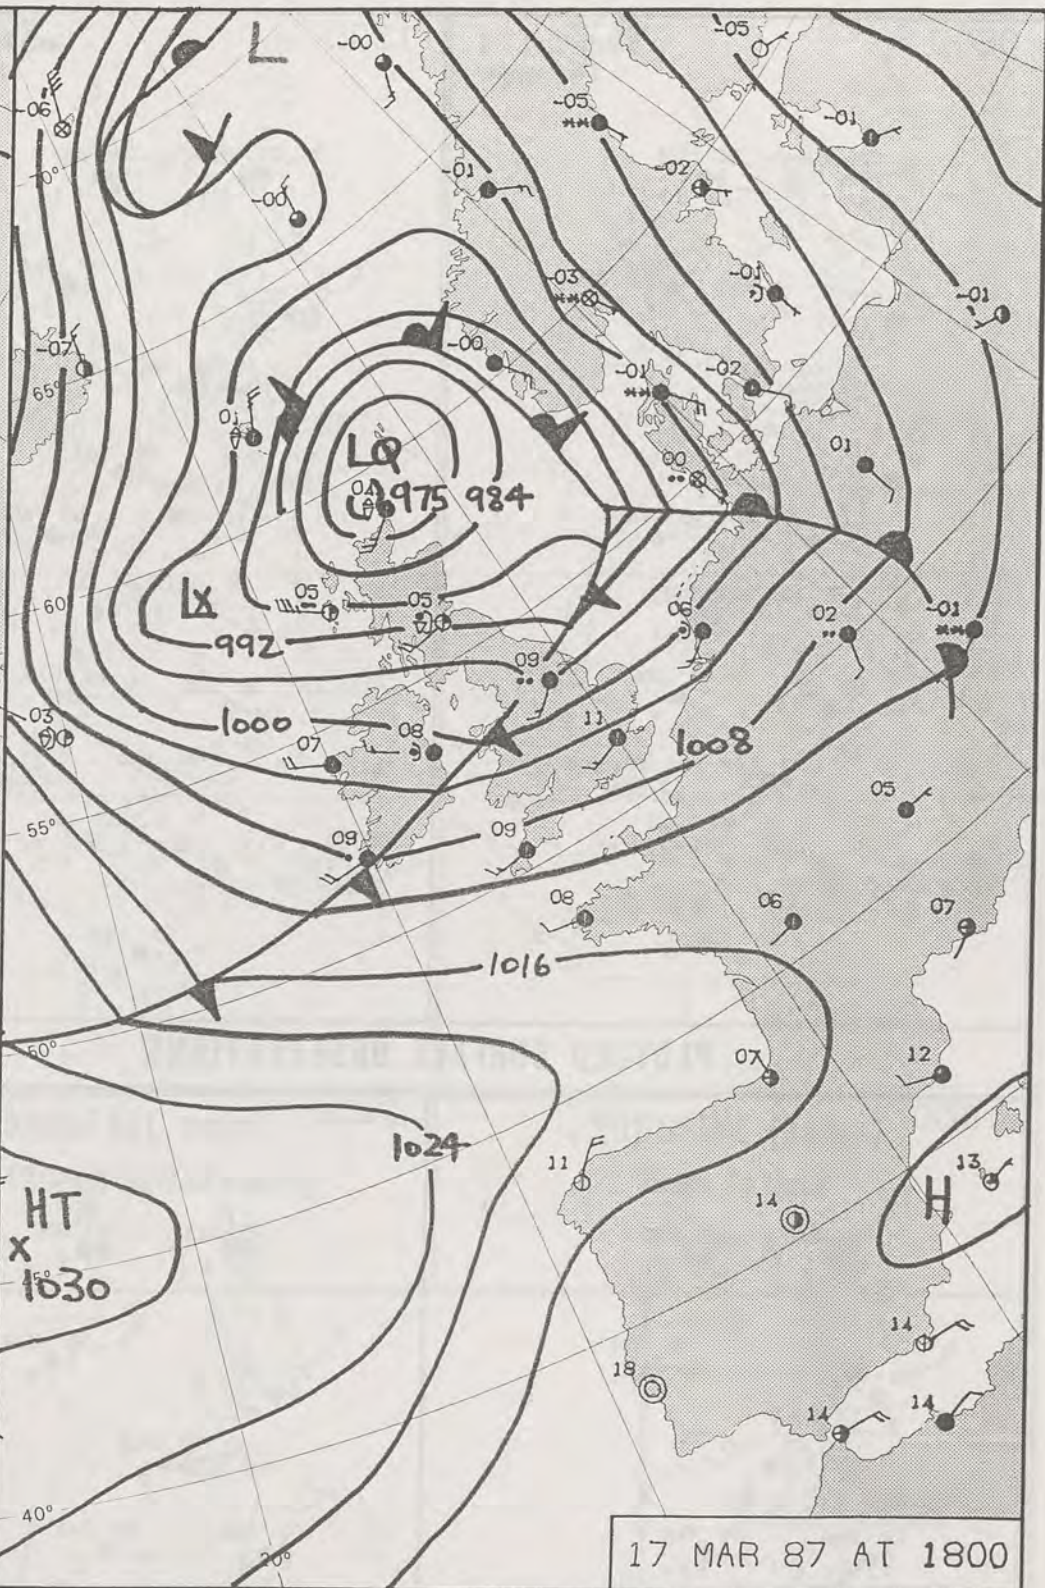 L
-00
-05
-06
-05
-01
70°
-01
-02
-00
-03
-01
-01
-07
-00
-01
-02
65°
01
01
LQ
00
04
975 984
05
05
LX
60
06
02
-01
992
09
1000
11
03
08
1008
07
05
55°
09
09
08
06
07
1016
50°
07
12
1024
11
13
HT
14
H
X
45°
1030
14
18
14
14
40°
20°
17 MAR 87 AT 1800